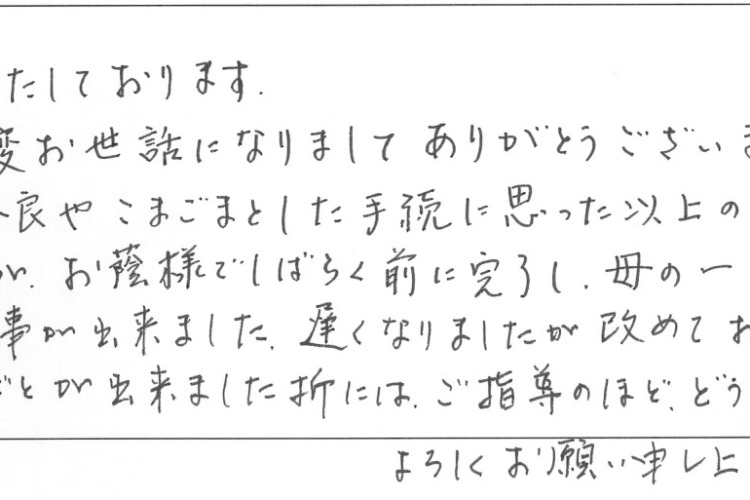 たしております.
変お世話になりまして ありがとうござい
良や こまごまとした手続に思った以上の
が. お蔭様でしばらく前に完了し. 母の一
事が出来ました. 遅くなりましたが 改めてお
とが出来ました折には. ご指導のほど、どう
よろしくお願い申し上